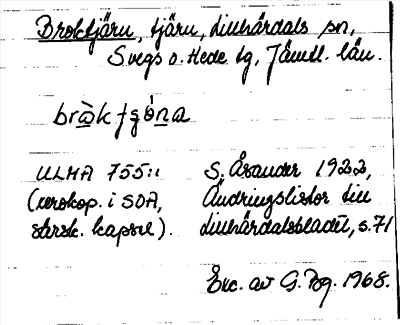 Broktjärn, tjärn, Lillhärdals sn,
Svegs o. Hede tg, Jämtl. län.
bràktʃə̀na
ULMA 755:1
(xerokop. i SOA,
särsk. kapsel).
S. Åsander 1922,
Ändringslistor till
Lillhärdalsbladet, s. 71
Exc. av G. Pg. 1968.